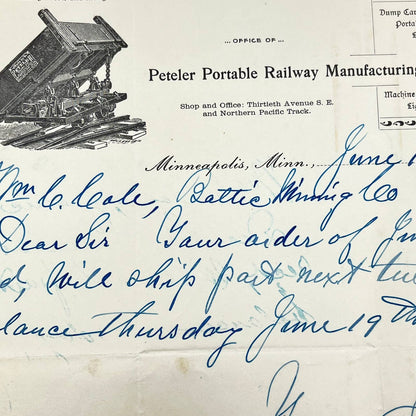 OFFICE OF
Dump Car
Porta
Peteler Portable Railway Manufacturing
Shop and Office: Thirtieth Avenue S. E.
and Northern Pacific Track.
Machine
Lig
Minneapolis, Minn., June 1
Wm C. Cole, Baltic Mining Co
Dear Sir Your order of Ju
d, will ship part next tue
lance Thursday June 19th